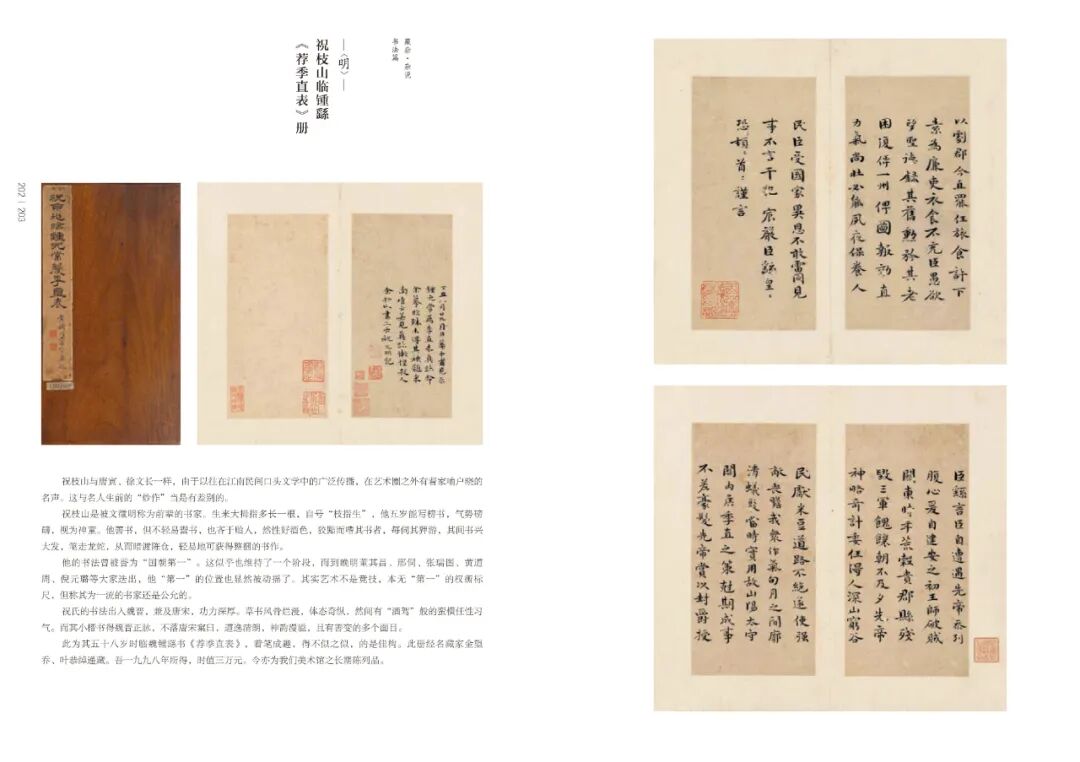 书法篇
—〈明〉—
祝枝山临锺繇
《荐季直表》册
202 | 203
祝京兆臨鍾元常薦季直表
祝枝山与唐寅、徐文长一样，由于以往在江南民间口头文学中的广泛传播，在艺术圈之外有着家喻户晓的
名声。这与名人生前的“炒作”当是有差别的。
祝枝山是被文徵明称为前辈的书家。生来大拇指多长一根，自号“枝指生”，他五岁能写榜书，气势磅
礴，视为神童。他善书，但不轻易鬻书，也吝于贻人，然性好酒色，狡黠而嗜其书者，每伺其狎游，其间书兴
大发，笔走龙蛇，从而暗渡陈仓，轻易地可获得整捆的书作。
他的书法曾被誉为“国朝第一”。这似乎也维持了一个阶段，而到晚明董其昌、邢侗、张瑞图、黄道
周、倪元璐等大家迭出，他“第一”的位置也显然被动摇了。其实艺术不是竞技，本无“第一”的权衡标
尺，但称其为一流的书家还是公允的。
祝氏的书法出入魏晋，兼及唐宋，功力深厚。草书风骨烂漫，体态奇纵，然间有“酒驾”般的蛮横任性习
气。而其小楷书得魏晋正脉，不落唐宋窠臼，遒逸清朗，神韵漫溢，且有善变的多个面目。
此为其五十八岁时临魏锺繇书《荐季直表》，着笔成趣，得不似之似，的是佳构。此册经名藏家金望
乔、叶恭绰递藏。吾一九九八年所得，时值三万元。今亦为我们美术馆之长期陈列品。
以劉郡今直罷任旅食許下
素為廉吏衣食不充臣愚欲
望聖德錄其舊勲矜其老
困復俾一州俾圖報效直
力氣尚壯必能夙夜保養人
民臣受國家異恩不敢雷同見
事不言干犯宸嚴臣繇皇〻
恐〻頓〻首〻謹言
臣繇言臣自遭遇先帝忝列
腹心爰自建安之初王師破賊
關東時年荒穀貴郡縣殘
毀三軍餽饟朝不及夕先帝
神略奇計委任得人深山窮谷
民獻米豆道路不絕遂使強
敵喪膽我眾作氣旬月之間廓
清蟻聚當時實用故山陽太守
關內侯季直之策尅期成事
不差豪髮先帝賞以封爵授